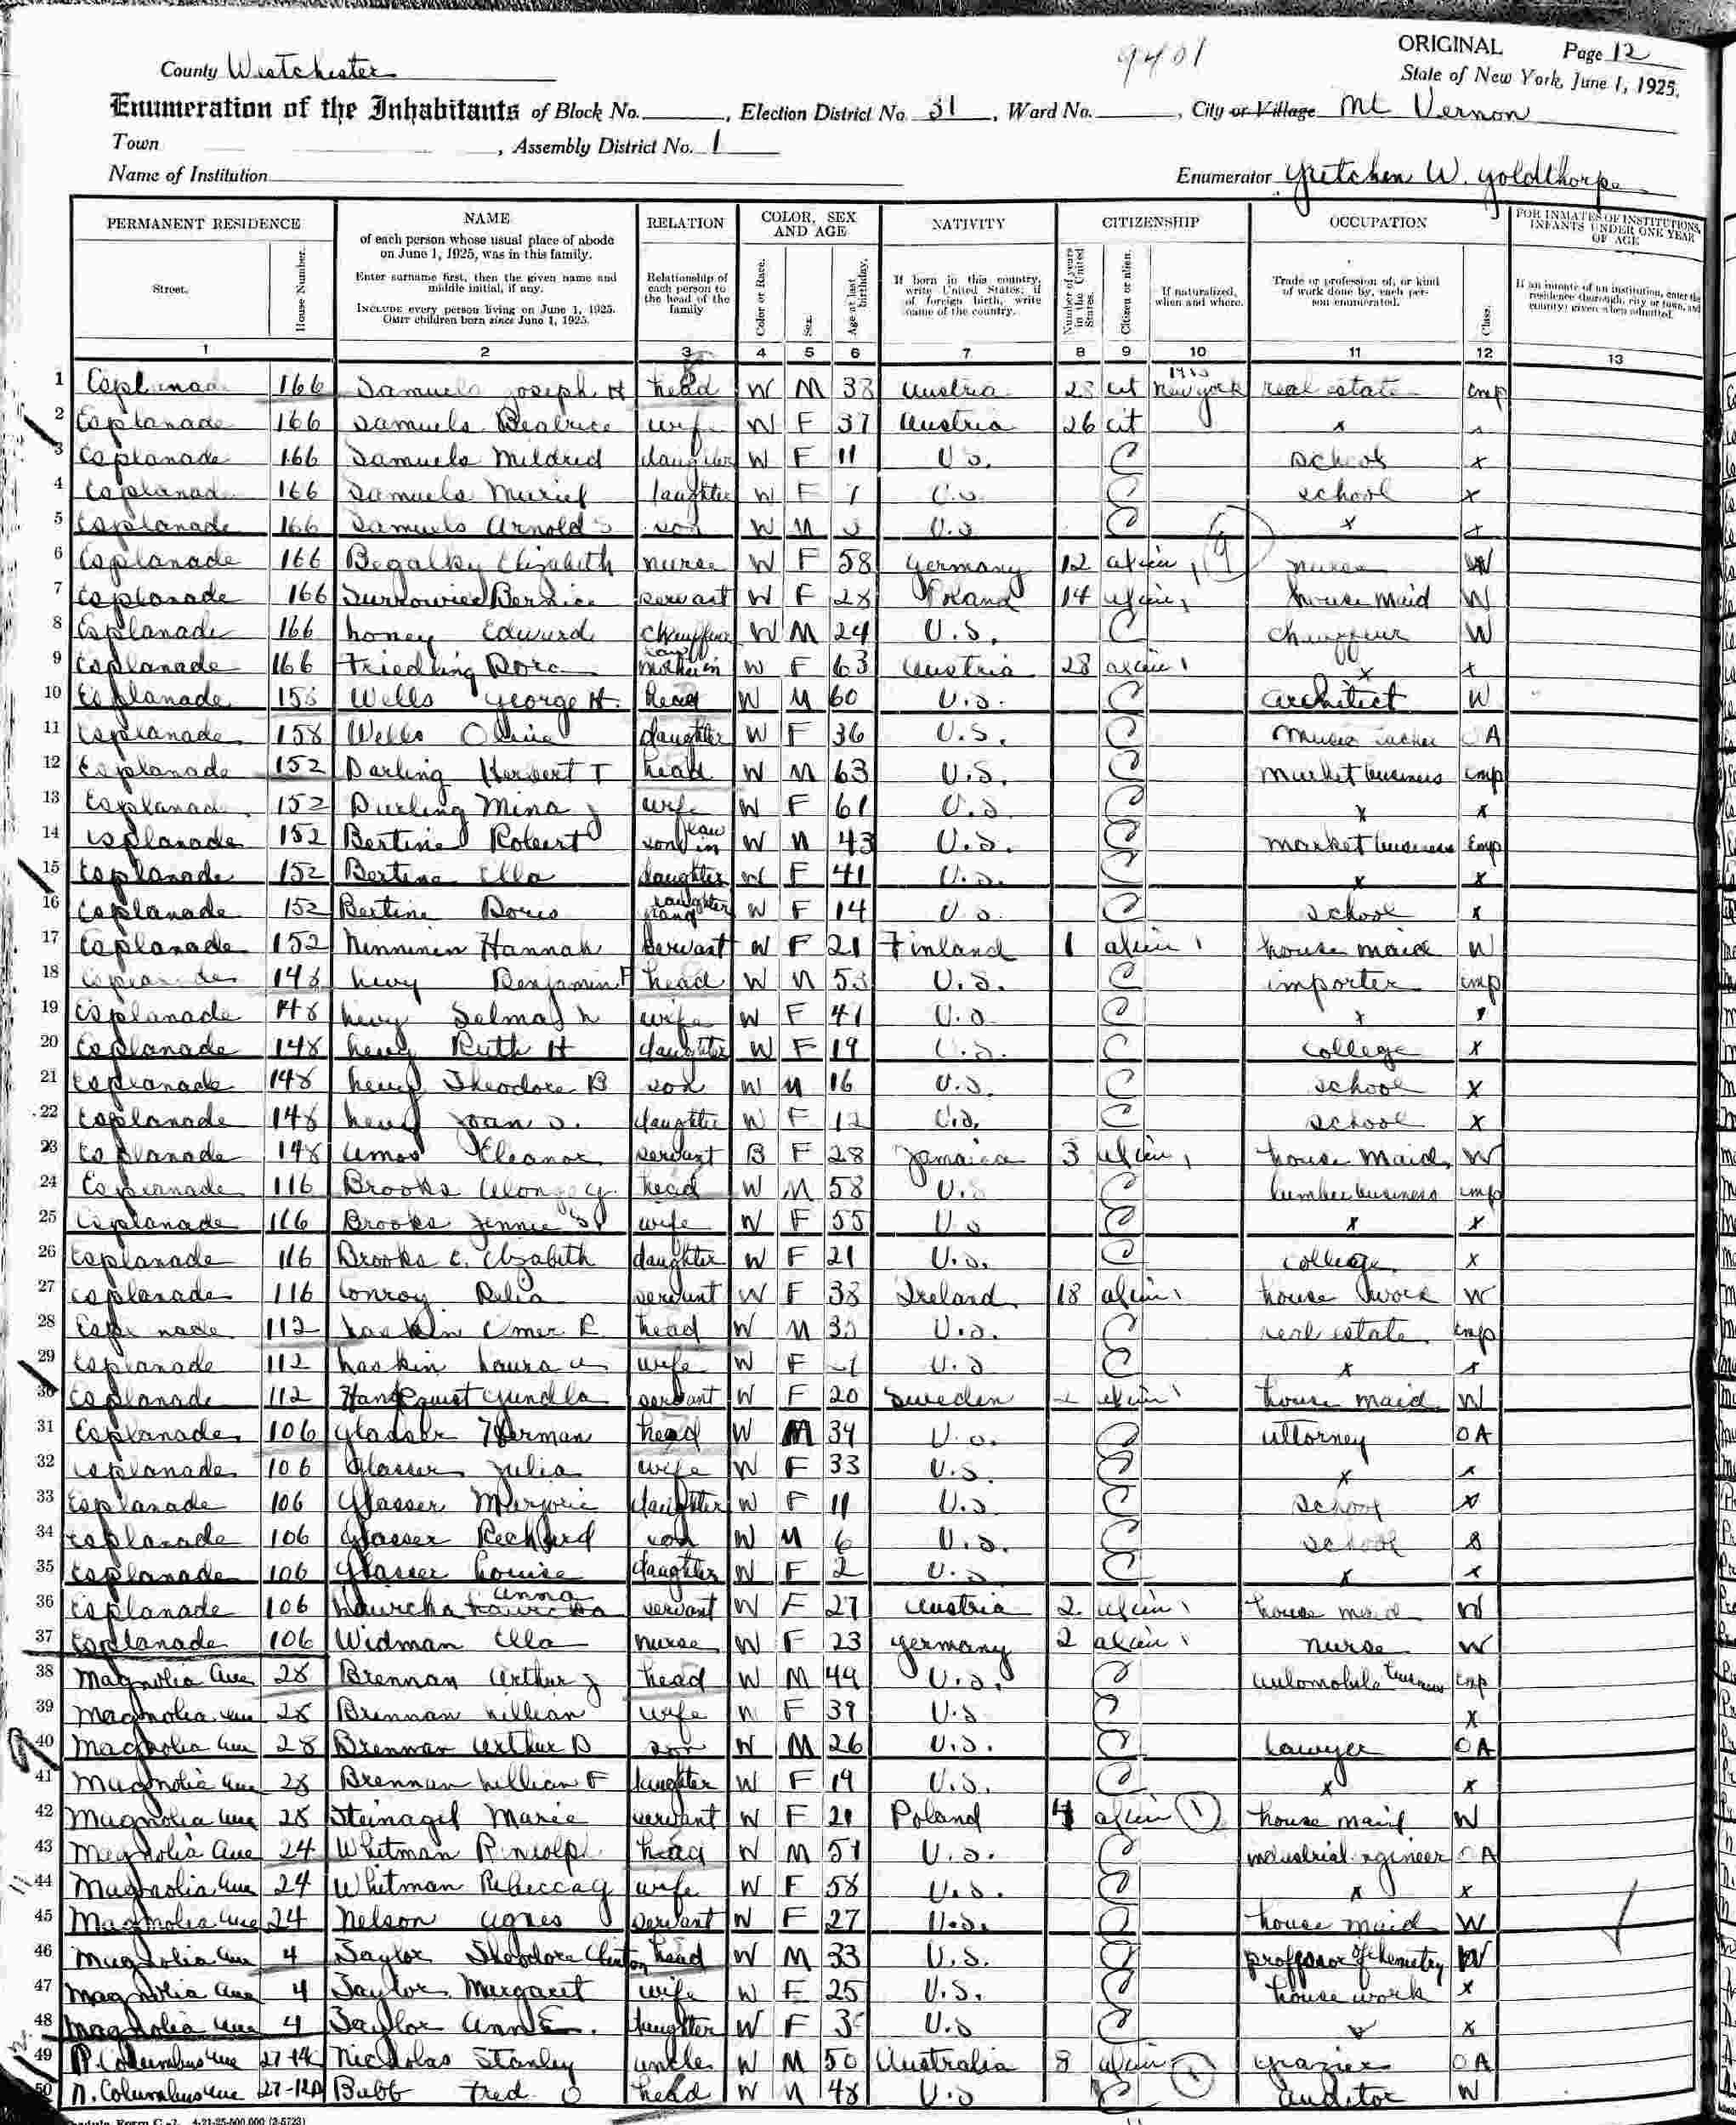 9401
ORIGINAL Page 12
County Westchester
State of New York, June 1, 1925.
Enumeration of the Inhabitants of Block No. , Election District No. 31 , Ward No. , City or Village Mt Vernon
Town , Assembly District No. 1
Name of Institution Enumerator Gretchen W. Goldthorpe
PERMANENT RESIDENCE NAME RELATION COLOR, SEX AND AGE NATIVITY CITIZENSHIP OCCUPATION FOR INMATES OF INSTITUTIONS, INFANTS UNDER ONE YEAR OF AGE
Street. House Number. of each person whose usual place of abode on June 1, 1925, was in this family. Enter surname first, then the given name and middle initial, if any. INCLUDE every person living on June 1, 1925. OMIT children born since June 1, 1925. Relationship of each person to the head of the family Color or Race. Sex. Age at last birthday. If born in this country, write United States; if of foreign birth, write name of the country. Number of years in the United States. Citizen or alien. If naturalized, when and where. Trade or profession of, or kind of work done by, each person enumerated. Class. If an inmate of an institution, enter the residence thorough, city or town, and county; given when admitted.
1 2 3 4 5 6 7 8 9 10 11 12 13
1 Esplanade 166 Samuels Joseph H head W M 38 Austria cit New York real estate emp
2 Esplanade 166 Samuels Beatrice wife W F 37 Austria 26 cit x
3 Esplanade 166 Samuels Mildred daughter W F 11 U.S. C school x
4 Esplanade 166 Samuels Muriel daughter W F 7 U.S. C school x
5 Esplanade 166 Samuels Arnold son W M U.S C x x
6 Esplanade 166 Begalky Elizabeth nurse W F 58 Germany 12 alien nurse W
7 Esplanade 166 Bernice servant W F 28 Poland 14 alien house maid W
8 Esplanade 166 Loney Edward chauffeur W M 24 U.S. C chauffeur W
9 Esplanade 166 Friedling Dora mother in law W F 63 Austria 28 alien x x
10 Esplanade 158 Wells George H. head W M 60 U.S. C architect W
11 Esplanade 158 Wells Olive daughter W F 36 U.S. C music teacher OA
12 Esplanade 152 Darling Herbert T head W M 63 U.S. C market business emp
13 Esplanade 152 Darling Mina J wife W F 61 U.S. C x x
14 Esplanade 152 Bertine Robert son in law W M 43 U.S. C market business Emp
15 Esplanade 152 Bertine Ella daughter W F 41 U.S. C x x
16 Esplanade 152 Bertine Doris grand daughter W F 14 U.S. C school x
17 Esplanade 152 Ninminen Hannah servant W F 21 Finland 1 alien house maid W
18 Esplanade 148 Levy Benjamin F head W M 53 U.S. C importer emp
19 Esplanade 148 Levy Selma L wife W F 41 U.S C x
20 Esplanade 148 Levy Ruth H daughter W F 19 U.S. C college x
21 Esplanade 148 Levy Theodore B son W M 16 U.S. C school x
22 Esplanade 148 Levy Joan S. daughter W F 12 U.S. C school x
23 Esplanade 148 Amos Eleanor servant B F 28 Jamaica 3 alien house maid W
24 Esplanade 116 Brooks Alonzo G. head W M 58 U.S C lumber business emp
25 Esplanade 116 Brooks Jennie wife W F 55 U.S C x x
26 Esplanade 116 Brooks E. Elizabeth daughter W F 21 U.S. C college x
27 Esplanade 116 Conroy Delia servant W F 38 Ireland 18 alien house work W
28 Esplanade 112 Laskin Omer R head W M U.S. C real estate emp
29 Esplanade 112 Laskin Laura wife W F U.S C x x
30 Esplanade 112 Gundla servant W F 20 Sweden alien house maid W
31 Esplanade 106 Glasser Herman head W M 34 U.S. C attorney OA
32 Esplanade 106 Glasser Julia wife W F 33 U.S. C x x
33 Esplanade 106 Glasser Marjorie daughter W F 11 U.S C school x
34 Esplanade 106 Glasser Richard son W M 6 U.S. C school x
35 Esplanade 106 Glasser Louise daughter W F 2 U.S C x x
36 Esplanade 106 Anna servant W F 27 Austria 2 alien house maid W
37 Esplanade 106 Widman Ella nurse W F 23 Germany 2 alien nurse W
38 Magnolia Ave 28 Brennan Arthur J head W M 49 U.S. C automobile business emp
39 Magnolia Ave 28 Brennan Lillian wife W F 39 U.S C x
40 Magnolia Ave 28 Brennan Arthur D son W M 26 U.S. C lawyer OA
41 Magnolia Ave 28 Brennan Lillian F daughter W F 19 U.S. C x x
42 Magnolia Ave 28 Steinagel Marie servant W F 21 Poland 4 alien 1 house maid W
43 Magnolia Ave 24 Whitman head W M 51 U.S. C industrial engineer OA
44 Magnolia Ave 24 Whitman Rebecca G wife W F 58 U.S. C x x
45 Magnolia Ave 24 Nelson Agnes servant W F 27 U.S. C house maid W
46 Magnolia Ave 4 Taylor Theodore Clinton head W M 33 U.S. C proffosor of Chemetry W
47 Magnolia Ave 4 Taylor Margaret wife W F 25 U.S. C house work x
48 Magnolia Ave 4 Taylor Ann E. daughter W F 3 U.S C x x
49 N. Columbus Ave 27-14 Nicholas Stanley uncle W M 50 Australia 8 alien 1 grazier OA
50 N. Columbus Ave 27-12A Bubb Fred O head W M 48 U.S C auditor W